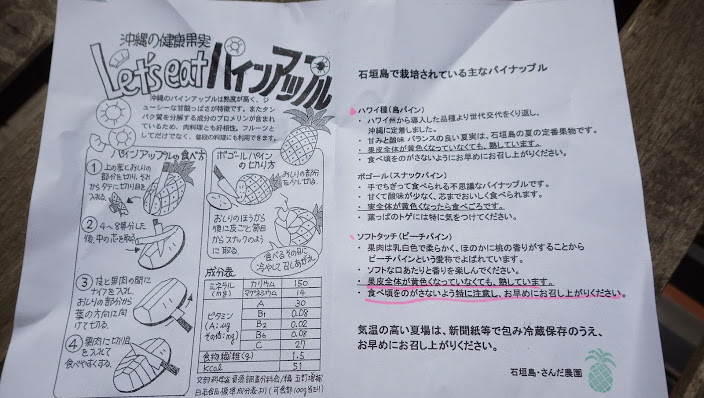 沖縄の健康果実
Let's eat パインアップル
沖縄のパインアップルは熟度が高く、ジ
ューシーな甘酸っぱさが特徴です。またタン
パク質を分解する成分のブロメリンが含ま
れているため、肉料理とも好相性。フルーツと
してだけでなく、普段の料理にも利用できます。
パインアップルの食べ方
① 上の葉とおしりの
部分を切り、それ
からタテに切り目を
入れる。
② 4~8等分した
後、中の芯を取る
③ 皮と果肉の間に
ナイフを入れ、
おしりの部分から
葉の方向に向
けて切る。
④ 果肉に切り目
を入れて
食べやすくする。
ボゴールパイン
の切り方
おしりの部分
を少し切る。
おしりのほうから
順に皮ごと節目
からスナックのよう
に取る。
食べるその前に
冷やして召しあがれ。
成分表
ミネラル(mg) カリウム 150
マグネシウム 14
ビタミン(A:μg その他:mg) A 30
B1 0.08
B2 0.02
B6 0.08
C 27
食物繊維(g) 1.5
Kcal 51
日本食品標準成分表より(可食部100g当たり)
石垣島で栽培されている主なパイナップル
ハワイ種(島パイン)
・ ハワイ州から導入した品種より世代交代をくり返し、
沖縄に定着しました。
・ 甘みと酸味 バランスの良い夏実は、石垣島の夏の定番果物です。
・ 果皮全体が黄色くなっていなくても、熟しています。
・ 食べ頃をのがさないようにお早めにお召し上がりください。
ボゴール(スナックパイン)
・ 手でちぎって食べられる不思議なパイナップルです。
・ 甘くて酸味が少なく、芯までおいしく食べられます。
・ 実全体が黄色くなったら食べごろです。
・ 葉っぱのトゲには特に気をつけてください。
ソフトタッチ(ピーチパイン)
・ 果肉は乳白色で柔らかく、ほのかに桃の香りがすることから
ピーチパインという愛称でよばれています。
・ ソフトな口あたりと香りを楽しんでください。
・ 果皮全体が黄色くなっていなくても、熟しています。
・ 食べ頃をのがさないよう特に注意し、お早めにお召し上がりください。
気温の高い夏場は、新聞紙等で包み冷蔵保存のうえ、
お早めにお召し上がりください。
石垣島・さんだ農園